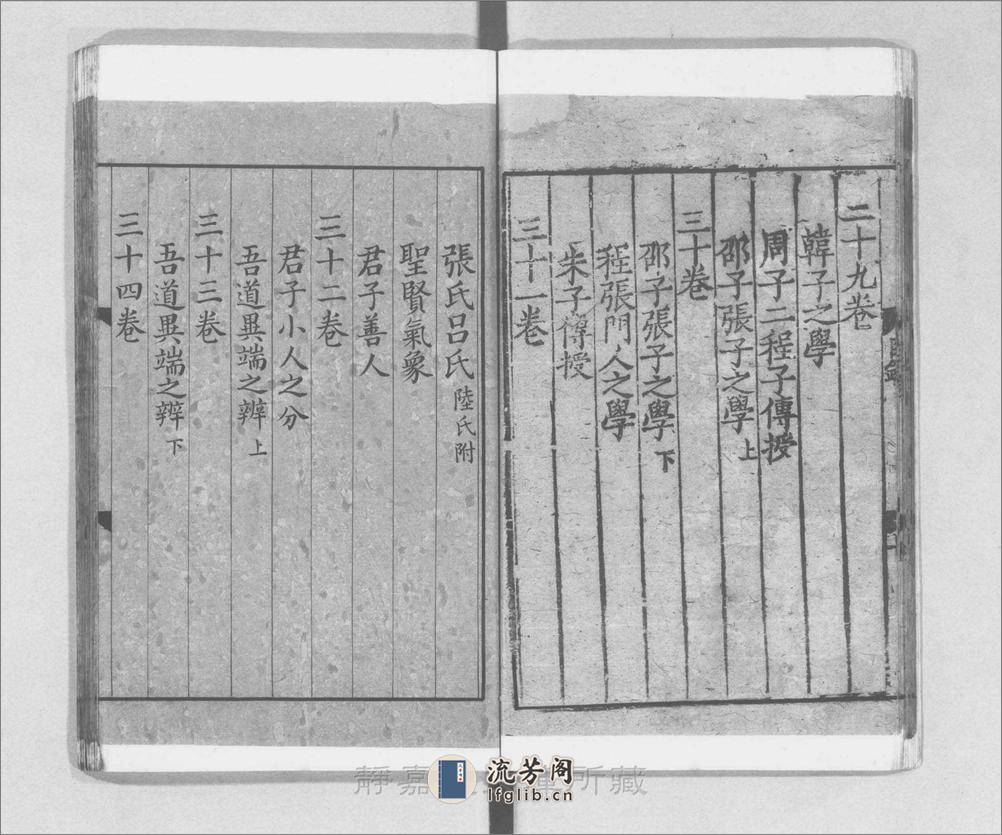 二十九卷
韓子之學
周子二程子傳授
邵子張子之學上
三十卷
邵子張子之學下
程張門人之學
朱子傳授
三十一卷
張氏呂氏陸氏附
聖賢氣象
君子善人
三十二卷
君子小人之分
吾道異端之辨上
三十三卷
吾道異端之辨下
三十四卷
目錄
靜嘉
所藏
流芳阁
lfglib.cn